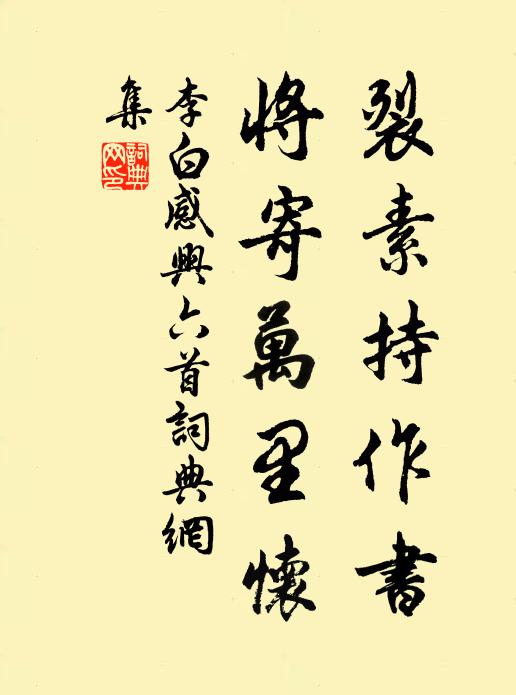 裂素持作書
將寄萬里懷
李白感興六首詞典網
集
詞典
网印